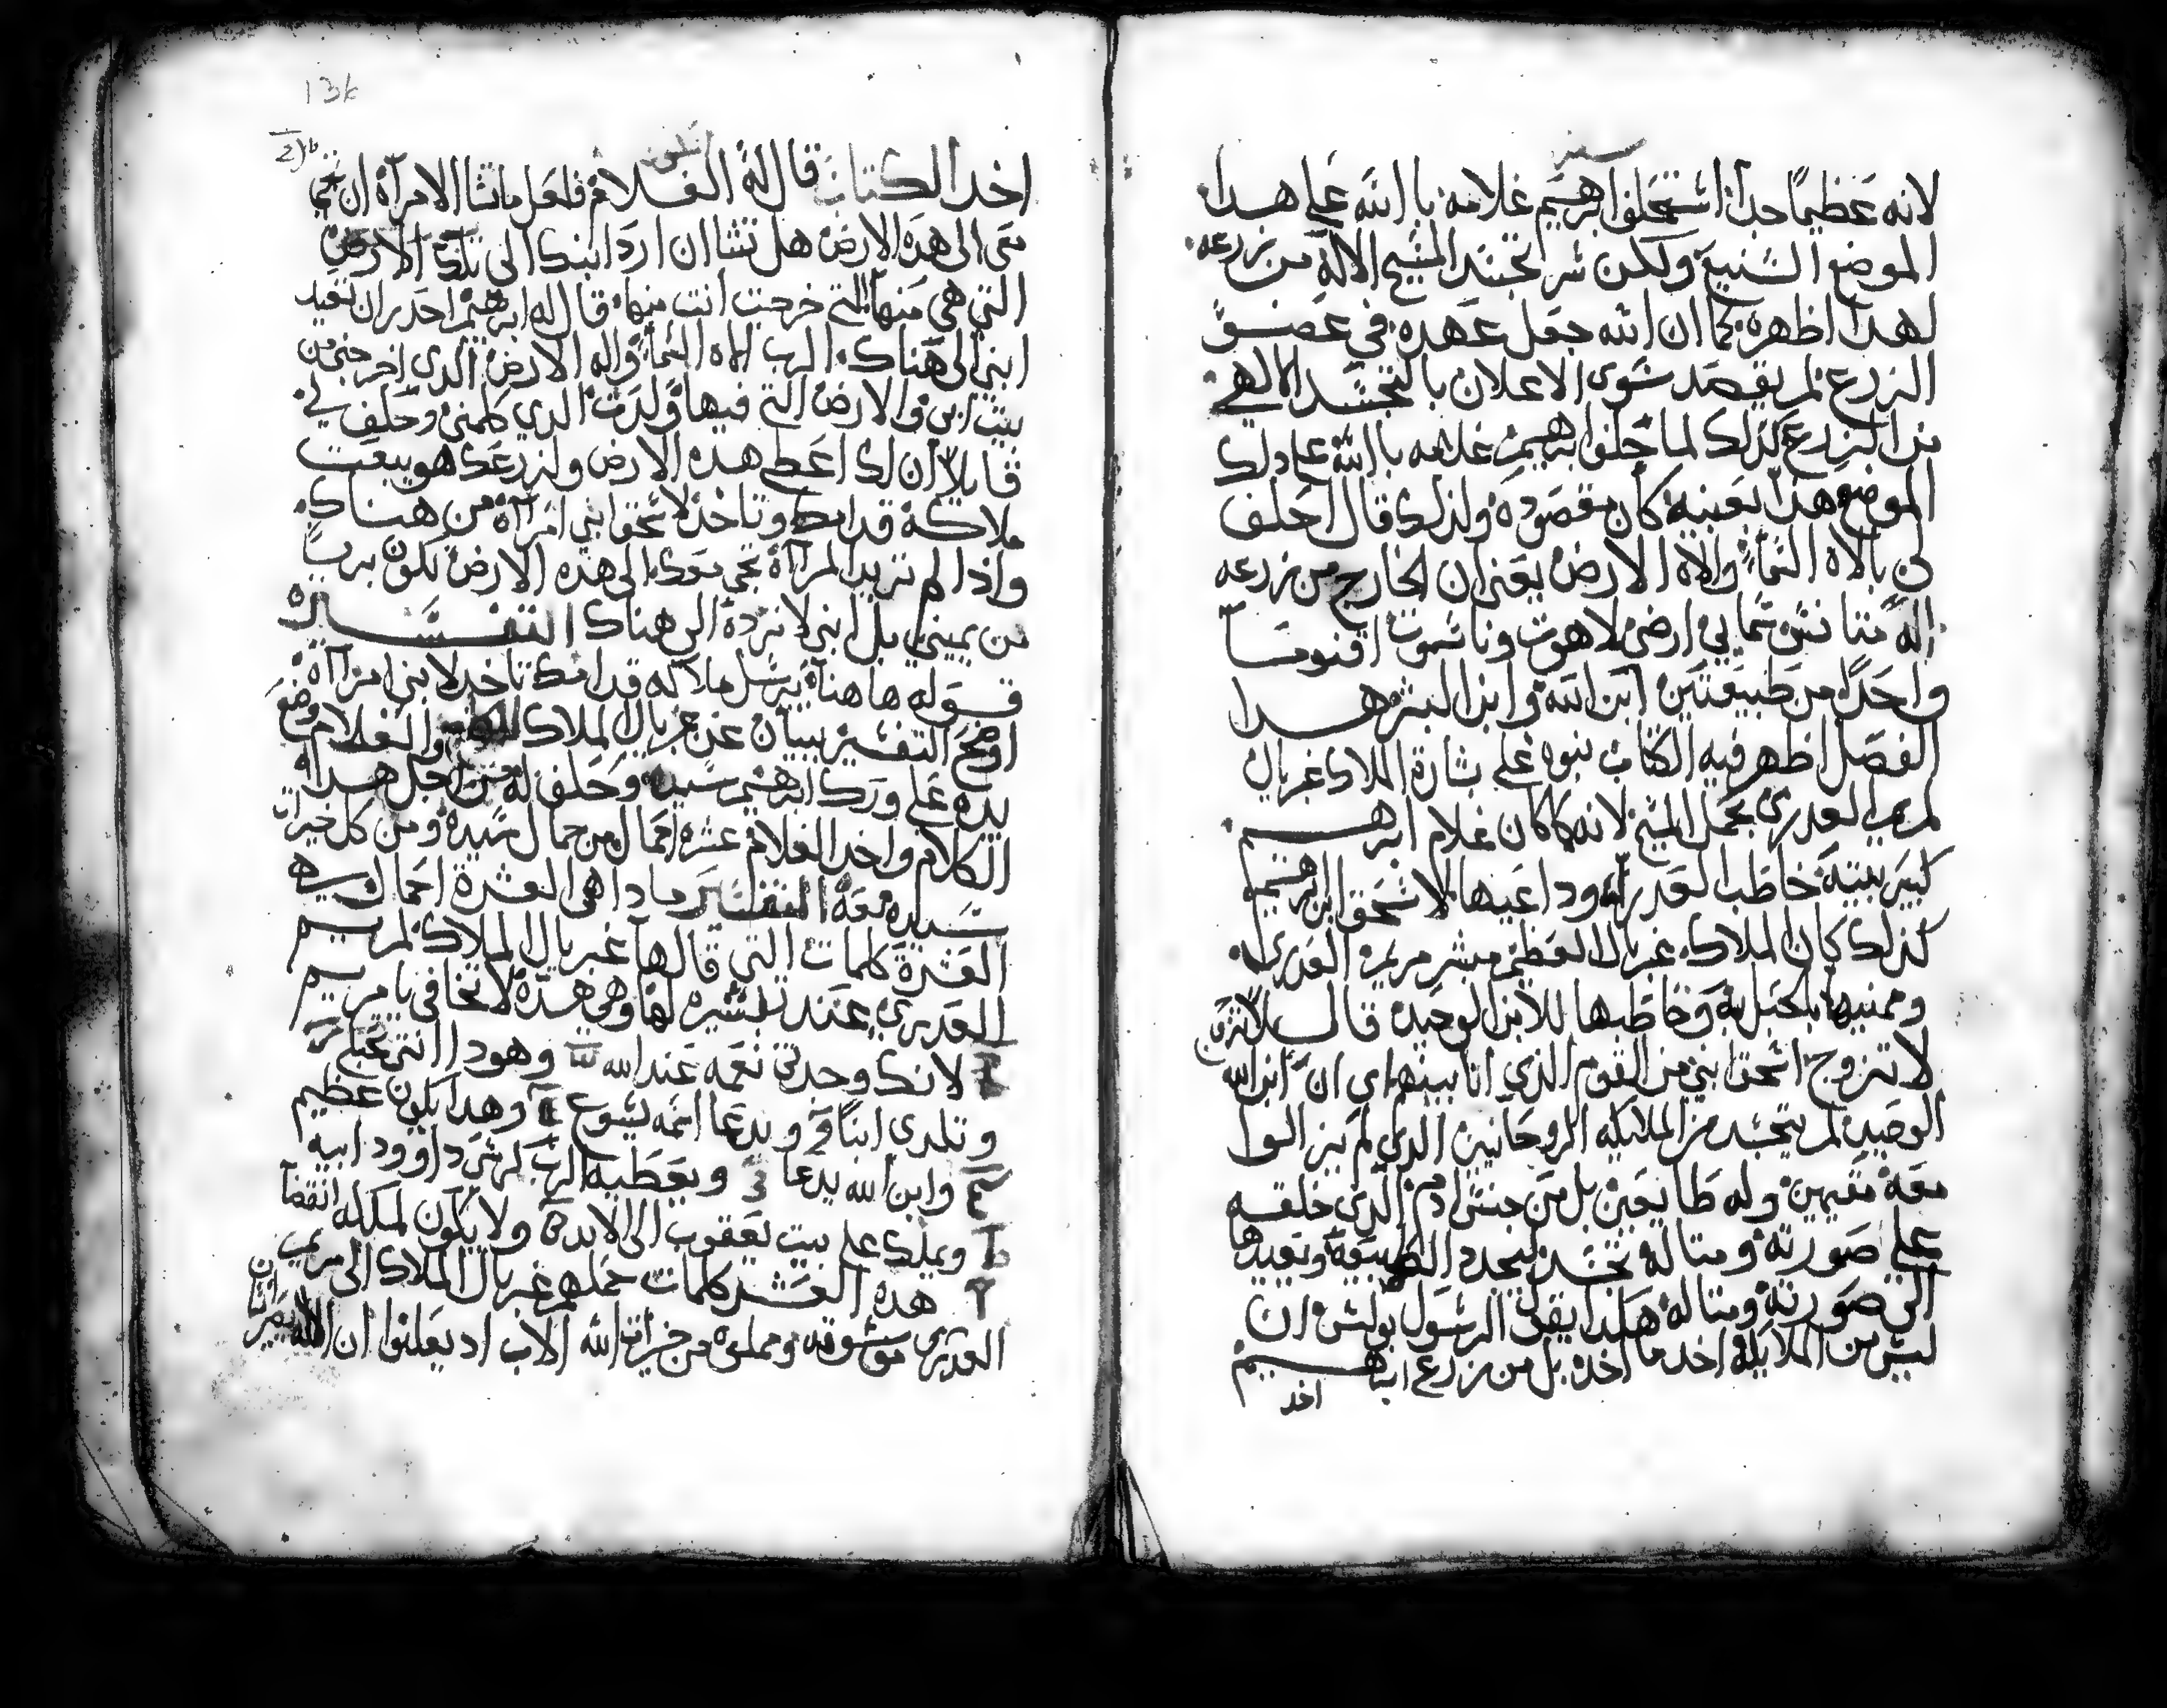 لانه عظيما جدا استحلف ابرهيم غلامه با الله على هدا
الموضع الشنيع ولكن سر تجسد المسيح الاله من زرعه
لهدا اظهره كما ان الله جعل عهده في عضو
الزرع لم يقصد سوى الاعلان بالتجسد الالهي
من الزرع كذلك لما حلف ابرهيم غلامه با الله على دلك
الموضع هدا بعينه كان مقصوده ولذلك قال احلف
لي بالاه السماء والاه الارض يعني ان الخارج من زرعه
اله متانس سمايي ارضي لاهوت وناسوت اقنوما
واحدا من طبيعتين ابن الله وابن البشر هدا
الفصل اظهر فيه الكتاب نبوه على بشارة الملاك غبريال
لمريم العدرى بحمل المسيح لانه كما كان غلام ابرهيم
كبير بيته خاطب العدرا وداعيها لاسحق ابن ابرهيم
كذلك كان الملاك غبريال العظيم مبشر مريم العدرى
وممنيها بالحبل به وخاطبها للابن الوحيد قال
لا تزوج اسحق ابني من القوم الذي انا بينهم اى ان ابن الله
الوحيد لم يتجسد من الملايكه الروحانيين الذي لم يزالوا
معه مقيمين وله طايعين بل من جنس ادم الذي خلقه
على صورته ومتاله تجسد ليجدد الطبيعة ويعيدها
الى صورته ومتاله هكدا يقول الرسول بولس ان
ليس من الملايكة اخد ما اخد بل من زرع ابراهيم
اخد
13k
اخد الكتاب قال له الغلام فلعل ما تشا الامراة ان تجى
معى الى هده الارض هل تشا ان ارد ابنك الى تلك الارض
التي هي منها التي خرجت انت منها قال له ابرهيم احدر ان تعيد
ابني الى هناك الرب الاه السماء واله الارض الدى اخرجني من
بيت ابي والارض التي فيها ولدت الدي كلمني وحلف لي
قايلا ان لك اعطى هده الارض ولزرعك هو يبعت
ملاكه قدامك وتاخد لاسحق ابني امراة من هناك
وادا لم تريد المراة تجى معك الى هده الارض تكون برى
من يميني بل ابني لا ترده الى هناك التفسير
قوله هاهناه يرسل ملاكه قدامك تاخد لابني امراة
اوضح التفسير ببيان عن غبريال الملاك والغلام وضع
يده على ورك ابرهيم سيده وحلف له من اجل هدا
الكلام واخد الغلام عشره احمال من جمال سيده ومن كل خيرات
سيده معه التفسير مادا هى العشرة احمال
العشرة كلمات التي قالها غبريال الملاك لمريم
العدرى عند تبشيره لها وهي هده لا تخافى يا مريم
لانك وجدتي نعمه عند الله وهودا انتي تحبلي
وتلدى ابنا ويدعا اسمه يسوع وهدا يكون عظيم
وابن الله يدعا ويعطيه الرب كرسي داوود ابيه
ويملك على بيت يعقوب الى الابد ولا يكون لملكه انقضا
هده العشر كلمات حملهم غبريال الملاك الى مريم
العدرى موسوقه ومملوه من خيرات الله الاب اد يعلنوا ان